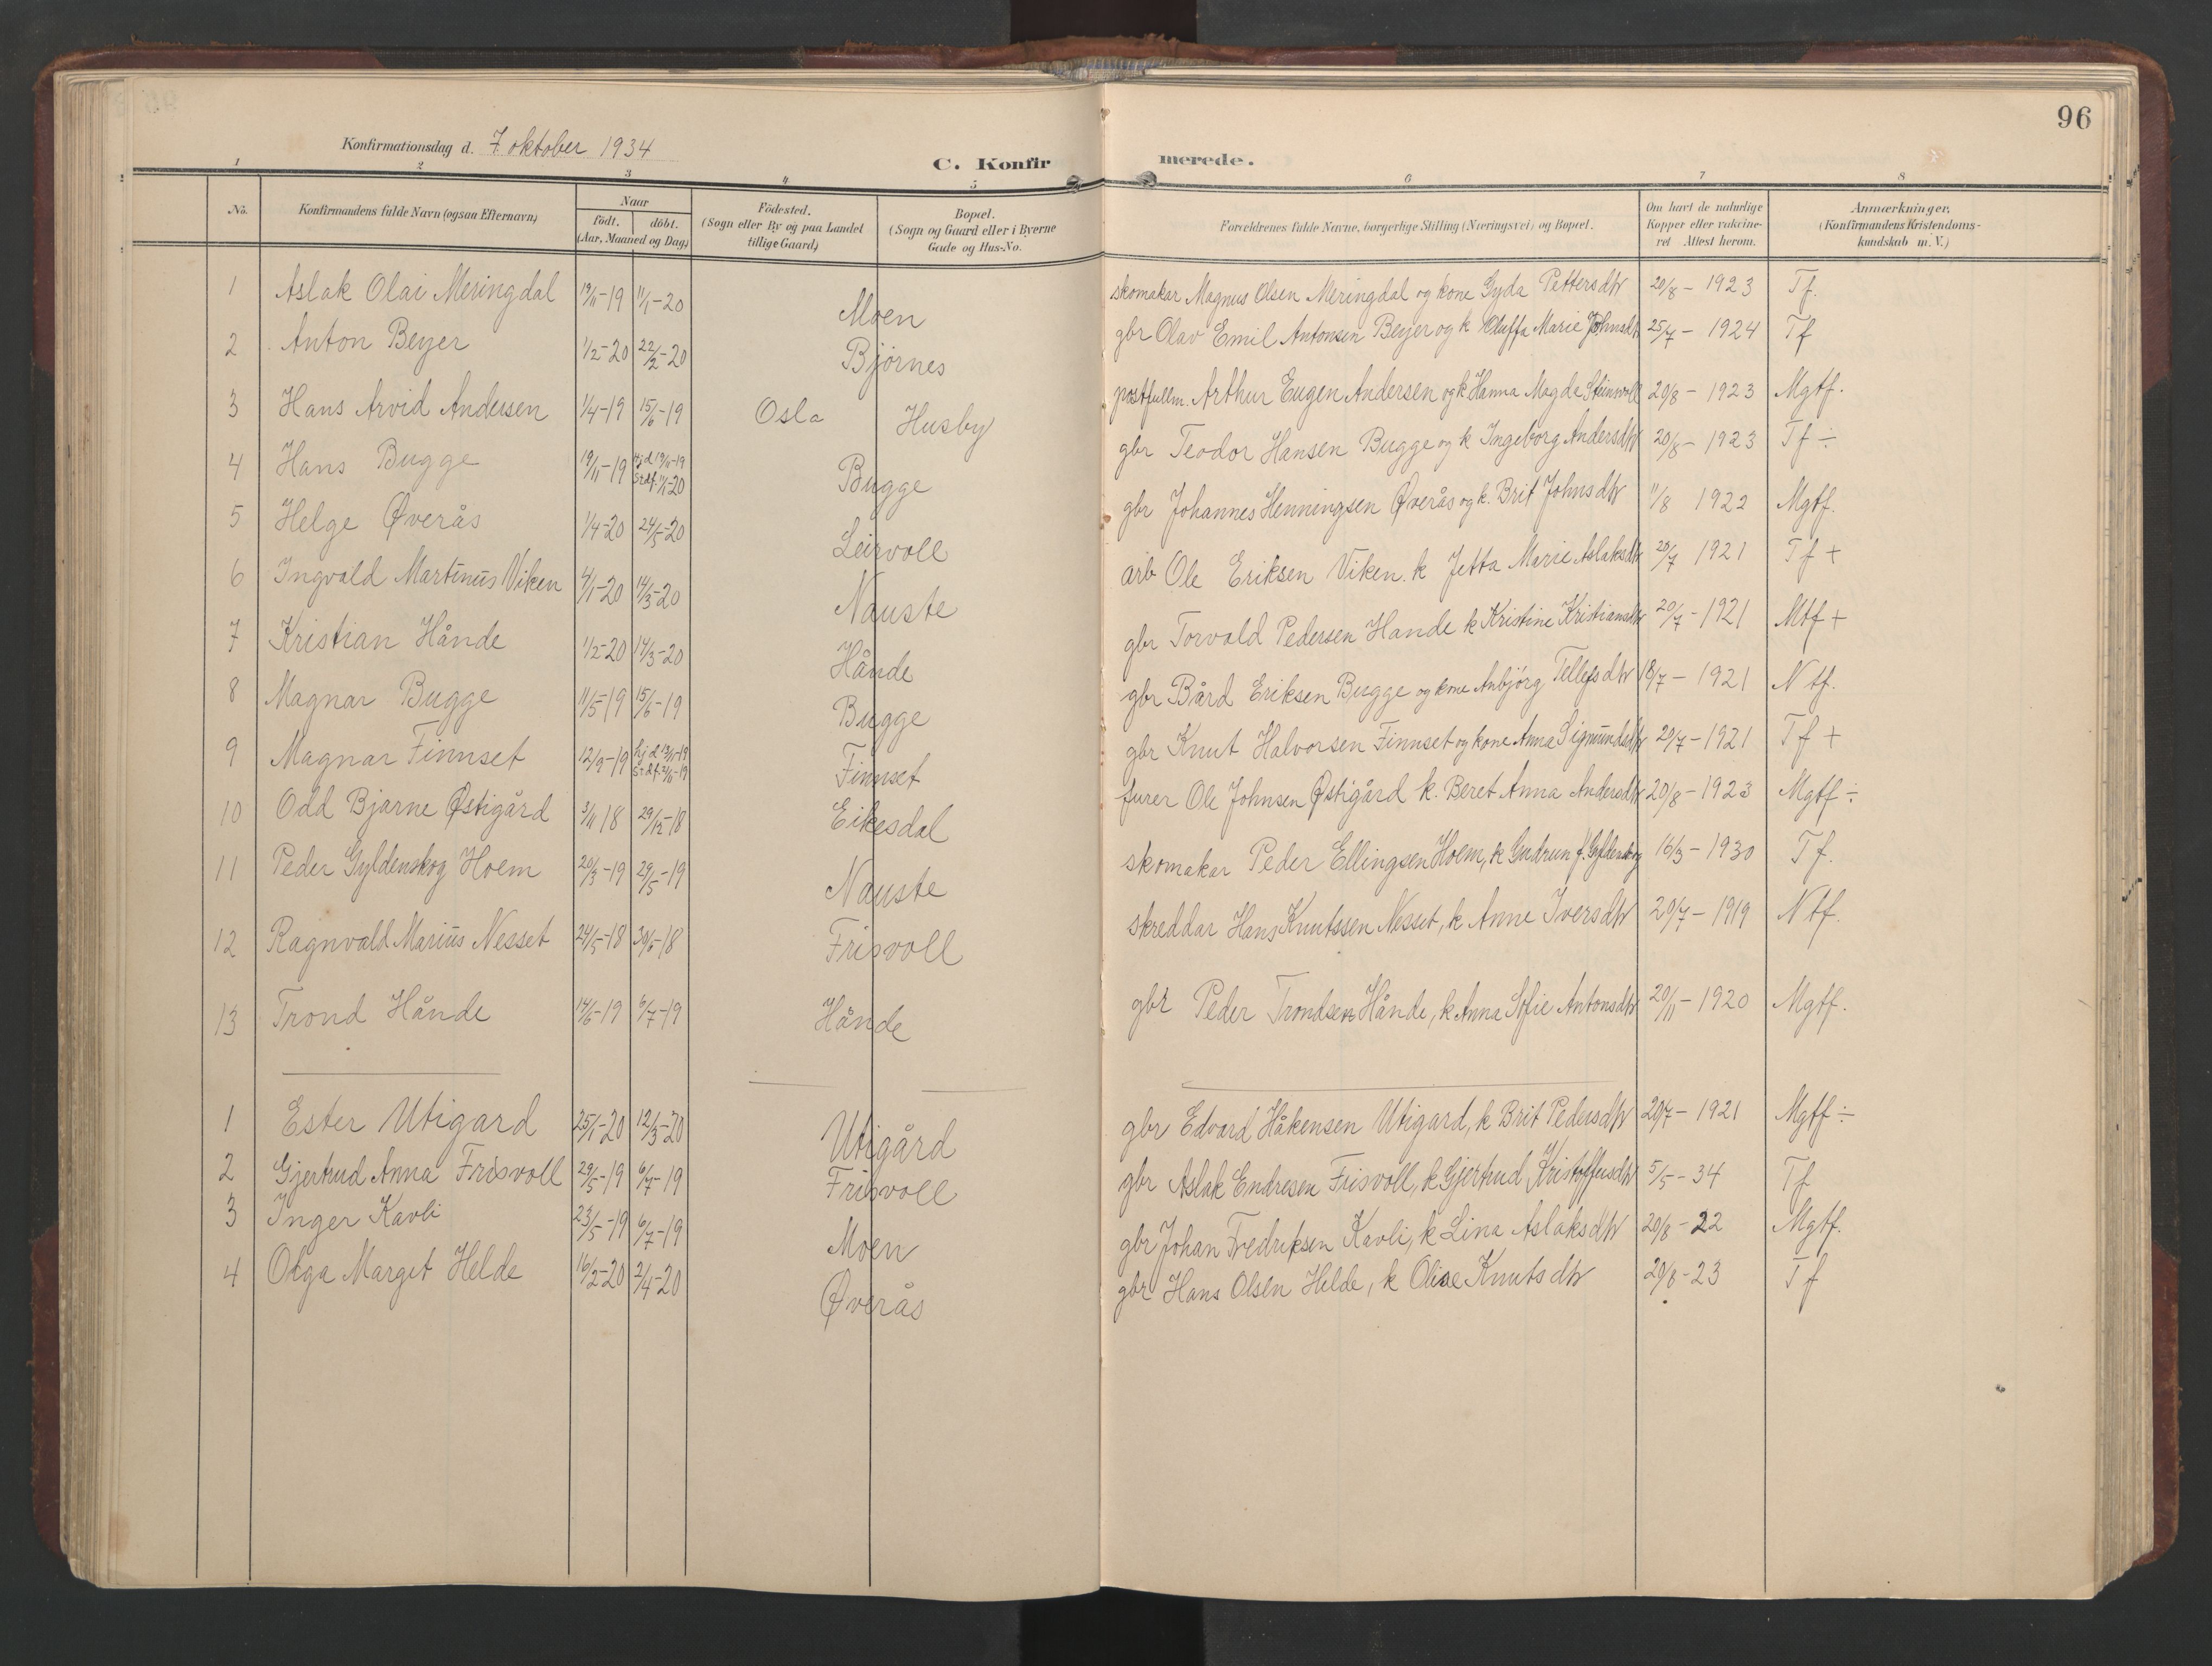 96
Konfirmationsdag d. 7. oktober 1934
C. Konfirmerede.
1 2 3 4 5 6 7 8
No.
Konfirmandens fulde Navn (ogsaa Efternavn)
Naar
födt. döbt.
(Aar, Maaned og Dag)
Födested.
(Sogn eller By og paa Landet
tillige Gaard)
Bopæl.
(Sogn og Gaard eller i Byerne
Gade og Hus-No.
Forældrenes fulde Navne, borgerlige Stilling (Næringsvei) og Bopæl.
Om havt de naturlige
Kopper eller vakcine-
ret Attest herom.
Anmærkninger.
(Konfirmandens Kristendoms-
kundskab m. V.)
1 Aslak Olai Meringdal 19/11-19 11/1-20 Moen skomakar Magnus Olsen Meringdal og kone Gyda Pettersdtr 20/8 - 1923 Tf.
2 Anton Beyer 1/2-20 22/2-20 Björnes gbr Olav Emil Antonsen Beyer og k Oluffa Marie Johnsdtr 25/7 - 1924 Tf
3 Hans Arvid Andersen 1/4-19 15/6-19 Oslo Husby postfullm. Arthur Eugen Andersen og k Hanna Magda Steinvoll 20/8 - 1923 Mgtf.
4 Hans Bugge 19/11-19 Hjd 19/11-19 Stdf. 11/1-20 Bugge gbr Teodor Hansen Bugge og k Ingeborg Andersdtr 20/8 - 1923 Tf ÷
5 Helge Øverås 1/4-20 24/5-20 Leirvoll gbr Johannes Henningsen Øverås og k. Brit Johnsdtr 11/8 1922 Mgtf.
6 Ingvald Martinus Viken 4/1-20 14/3-20 Nauste arb Ole Eriksen Viken. k Jetta Marie Aslaksdtr 20/7 1921 Tf +
7 Kristian Hånde 1/2-20 14/3-20 Hånde gbr Torvald Pedersen Hande k Kristine Kristiansdtr 20/7 - 1921 Mtf +
8 Magnar Bugge 11/5-19 15/6-19 Bugge gbr Bård Eriksen Bugge og kone Anbjörg Tellefsdtr 18/7 - 1921 Ntf.
9 Magnar Finnset 12/9-19 hjd 13/11-19 Stdf. 2/11-19 Finnset gbr Knut Halvorsen Finnset og kone Anna Sigmundsdtr 20/7 - 1921 Tf +
10 Odd Bjarne Østigård 3/11 18 29/12-18 Eikesdal furer Ole Johnsen Østigård k. Beret Anna Andersdtr 20/8 - 1923 Mgtf ÷
11 Peder Gyldenskog Hoem 20/3-19 29/5-19 Nauste skomakar Peder Ellingsen Hoem, k Gudrun f. Gyldenskog 16/3 - 1930 Tf.
12 Ragnvald Marius Nesset 24/5-18 30/6-18 Frisvoll skreddar Hans Knutssen Nesset, k Anne Iversdtr 20/7 - 1919 Ntf.
13 Trond Hånde 14/6-19 6/7-19 Hånde gbr Peder Trondsen Hånde, k Anna Sofie Antonsdtr 20/11 - 1920 Mgtf.
1 Ester Utigard 25/1-20 12/3-20 Utigård gbr Edvard Håkensen Utigard, k Brit Pedersdtr 20/7 - 1921 Mgtf ÷
2 Gjertrud Anna Frisvoll 29/5-19 6/7-19 Frisvoll gbr Aslak Endresen Frisvoll, k Gjertrud Kristoffersdtr 5/5 - 34 Tf
3 Inger Kavli 23/5-19 6/7-19 Moen gbr Johan Fredriksen Kavli, k Lina Aslaksdtr 20/8 - 22 Mgtf.
4 Olga Marget Helde 16/2-20 2/4-20 Øverås gbr Hans Olsen Helde, k Olise Knutsdtr 20/8 - 23 Tf